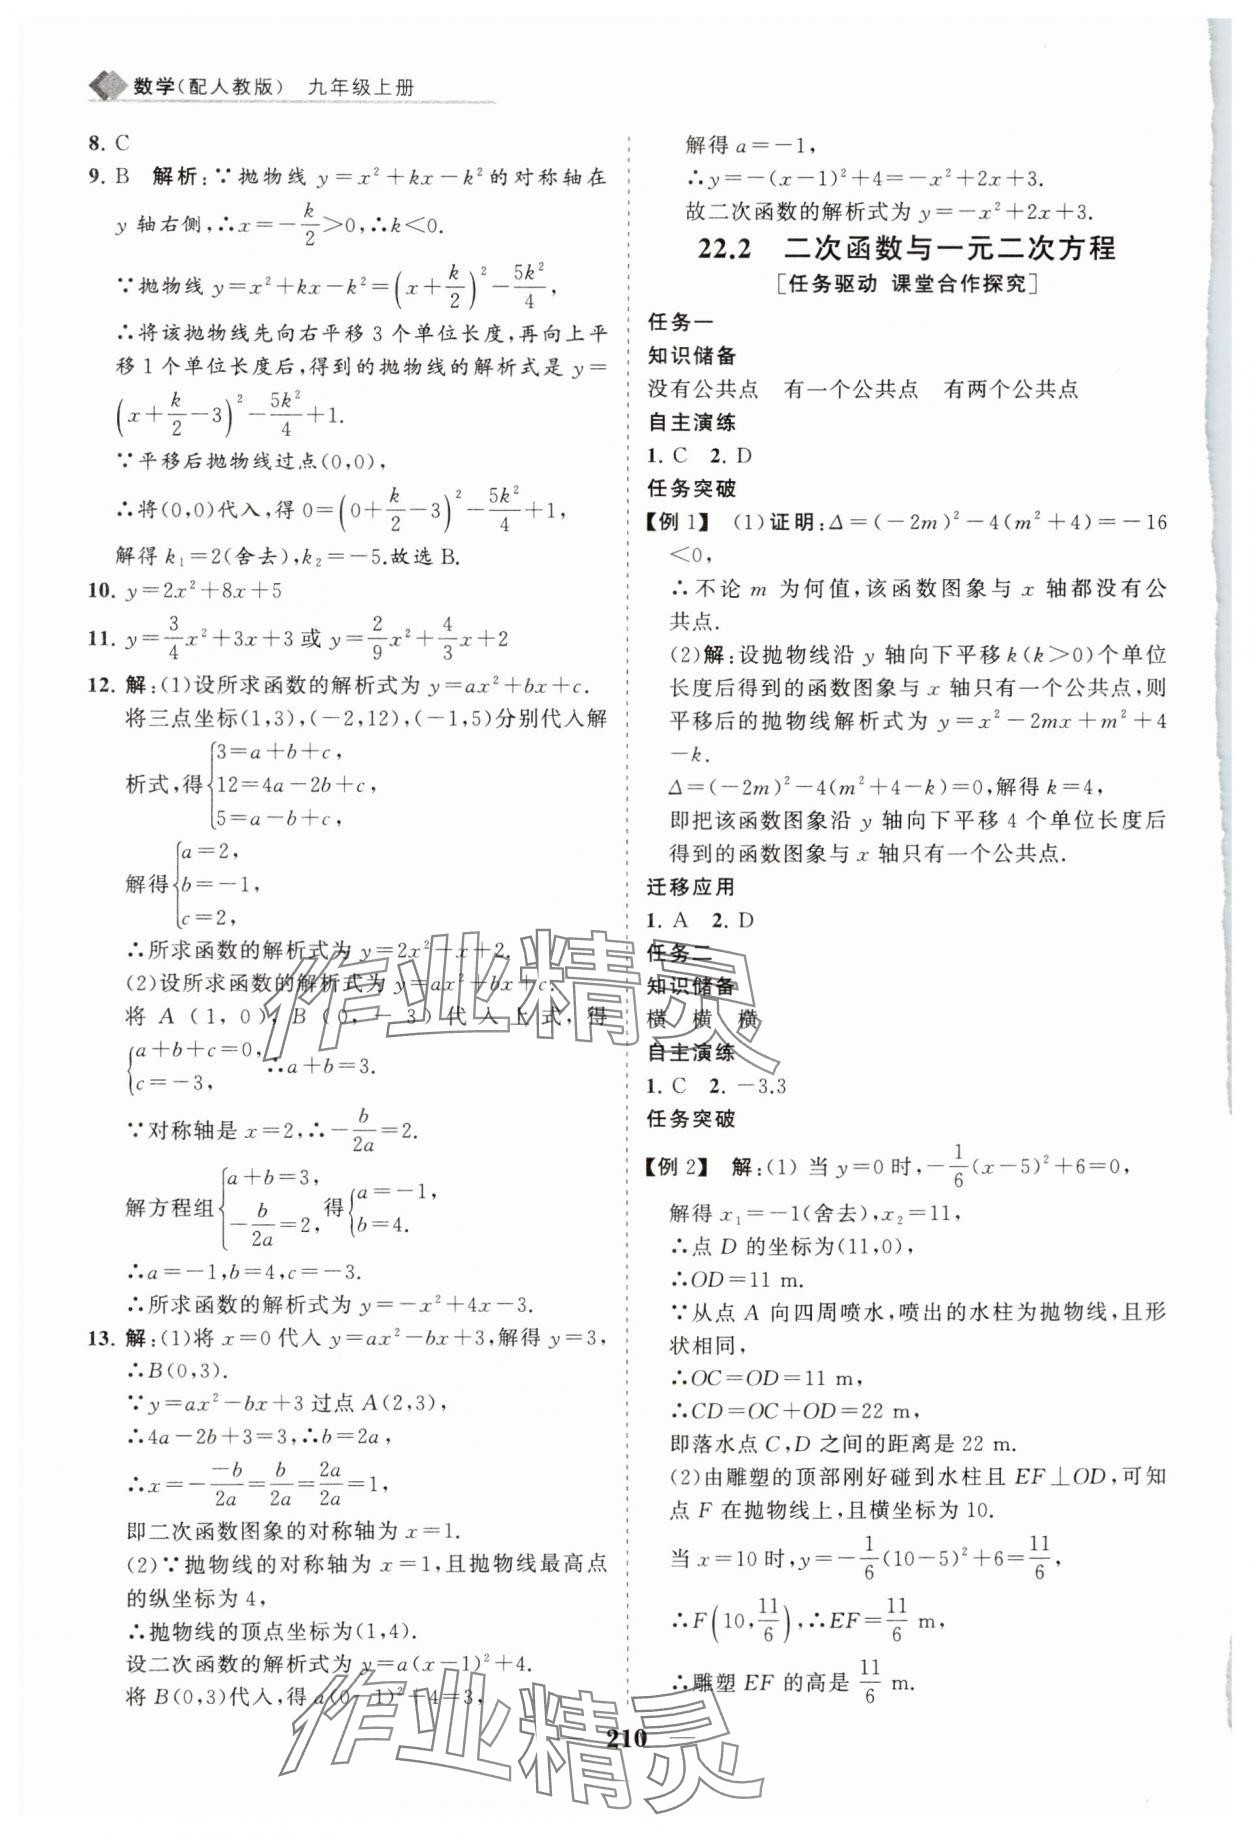 数学(配人教版) 九年级上册
8. C
9. B 解析:∵抛物线 y=x²+kx-k² 的对称轴在
y 轴右侧,∴x=-k/2>0,∴k<0.
∵抛物线 y=x²+kx-k²=(x+k/2)²-5k²/4,
∴将该抛物线先向右平移 3 个单位长度,再向上平
移 1 个单位长度后,得到的抛物线的解析式是 y=
(x+k/2-3)²-5k²/4+1.
∵平移后抛物线过点(0,0),
∴将(0,0)代入,得 0=(0+k/2-3)²-5k²/4+1,
解得 k₁=2(舍去),k₂=-5.故选 B.
10. y=2x²+8x+5
11. y=3/4x²+3x+3 或 y=2/9x²+4/3x+2
12. 解:(1)设所求函数的解析式为 y=ax²+bx+c.
将三点坐标(1,3),(-2,12),(-1,5)分别代入解
析式,得{3=a+b+c,
12=4a-2b+c,
5=a-b+c,
解得{a=2,
b=-1,
c=2,
∴所求函数的解析式为 y=2x²-x+2.
(2)设所求函数的解析式为 y=ax²+bx+c.
将 A (1,0),B (0,-3) 代入上式,得
{a+b+c=0,
c=-3,
∴a+b=3.
∵对称轴是 x=2,∴-b/2a=2.
解方程组{a+b=3,
-b/2a=2,
得{a=-1,
b=4.
∴a=-1,b=4,c=-3.
∴所求函数的解析式为 y=-x²+4x-3.
13. 解:(1)将 x=0 代入 y=ax²-bx+3,解得 y=3,
∴B(0,3).
∵y=ax²-bx+3 过点 A(2,3),
∴4a-2b+3=3,∴b=2a,
∴x=-(-b)/2a=b/2a=2a/2a=1,
即二次函数图象的对称轴为 x=1.
(2)∵抛物线的对称轴为 x=1,且抛物线最高点
的纵坐标为 4,
∴抛物线的顶点坐标为(1,4).
设二次函数的解析式为 y=a(x-1)²+4.
将 B(0,3)代入,得 a(0-1)²+4=3,
解得 a=-1,
∴y=-(x-1)²+4=-x²+2x+3.
故二次函数的解析式为 y=-x²+2x+3.
22.2 二次函数与一元二次方程
[任务驱动 课堂合作探究]
任务一
知识储备
没有公共点 有一个公共点 有两个公共点
自主演练
1. C 2. D
任务突破
【例 1】 (1)证明:Δ=(-2m)²-4(m²+4)=-16
<0,
∴不论 m 为何值,该函数图象与 x 轴都没有公
共点.
(2)解:设抛物线沿 y 轴向下平移 k(k>0)个单位
长度后得到的函数图象与 x 轴只有一个公共点,则
平移后的抛物线解析式为 y=x²-2mx+m²+4
-k.
Δ=(-2m)²-4(m²+4-k)=0,解得 k=4,
即把该函数图象沿 y 轴向下平移 4 个单位长度后
得到的函数图象与 x 轴只有一个公共点.
迁移应用
1. A 2. D
任务二
知识储备
横 横 横
自主演练
1. C 2. -3.3
任务突破
【例 2】 解:(1) 当 y=0 时,-1/6(x-5)²+6=0,
解得 x₁=-1(舍去),x₂=11,
∴点 D 的坐标为(11,0),
∴OD=11 m.
∵从点 A 向四周喷水,喷出的水柱为抛物线,且形
状相同,
∴OC=OD=11 m,
∴CD=OC+OD=22 m,
即落水点 C,D 之间的距离是 22 m.
(2)由雕塑的顶部刚好碰到水柱且 EF⊥OD,可知
点 F 在抛物线上,且横坐标为 10.
当 x=10 时,y=-1/6(10-5)²+6=11/6,
∴F(10,11/6),∴EF=11/6 m,
∴雕塑 EF 的高是 11/6 m.
210
作业精灵
作业精灵